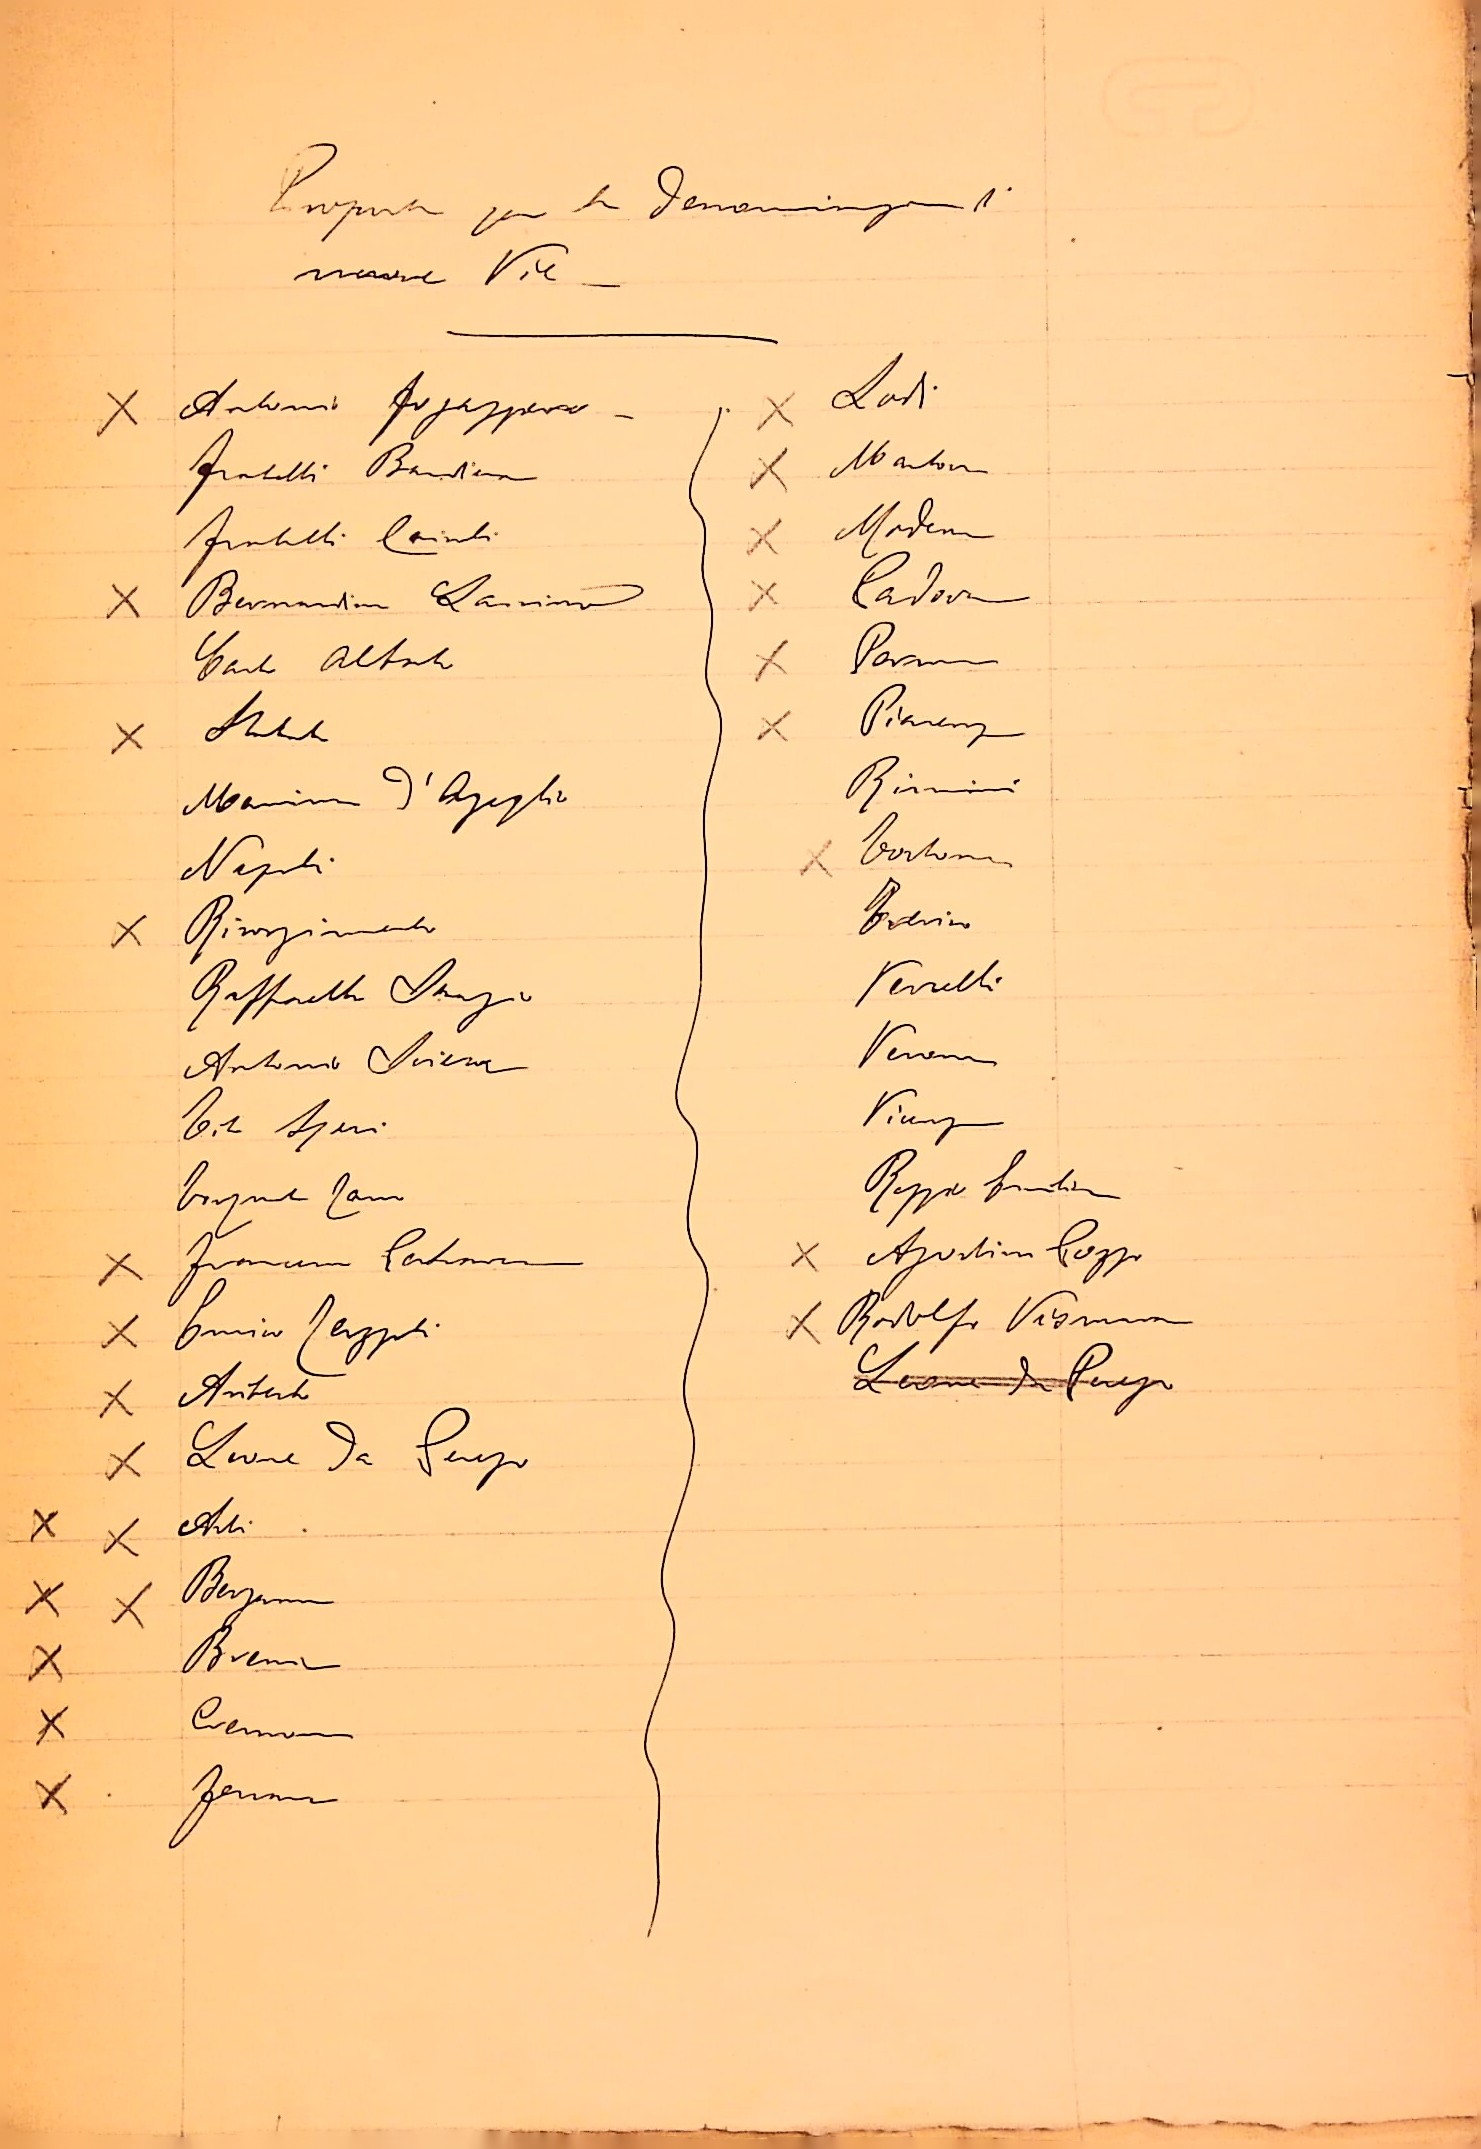 Proposta per la denominazione di
nuove Vie
Antonio Fogazzaro
Fratelli Bandiera
Fratelli Cairoli
Bernardino Lanino
Carlo Alberto
Statuto
Massimo D'Azeglio
Napoli
Risorgimento
Raffaello Sanzio
Antonio Sciesa
Tito Speri
Torquato Tasso
Francesco
Ennio
Ariberto
Leone Da Perego
Asti
Bergamo
Brescia
Cremona
Ferrara
Lodi
Mantova
Modena
Padova
Parma
Piacenza
Rimini
Tortona
Treviso
Vercelli
Verona
Vicenza
Reggio Emilia
Agostino Pozzo
Rodolfo Vismara
Leone da Perego